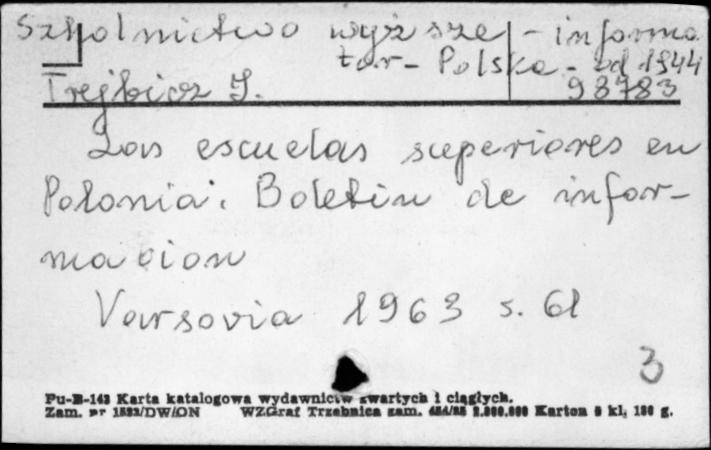 Szkolnictwo wyższe - informa
tor - Polska - od 1944
Trejbicz J. 98783
Las escuelas superiores en
Polonia. Boletin de infor-
macion
Varsovia 1963 s. 61
3
Pu-B-143 Karta katalogowa wydawnictw zwartych i ciągłych.
Zam. nr /DW/ON WZGraf Trzebnica zam. Karton kl.